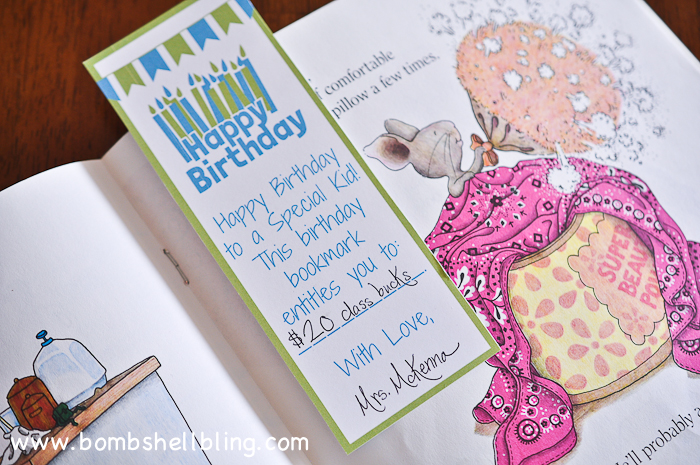 comfortable
pillow a few times.
Happy
Birthday
Happy Birthday
to a Special Kid!
This birthday
bookmark
entitles you to:
$20 class bucks
With Love,
Mrs. McKenna
SUPER
BEAU
'll probably a
www.bombshellbling.com